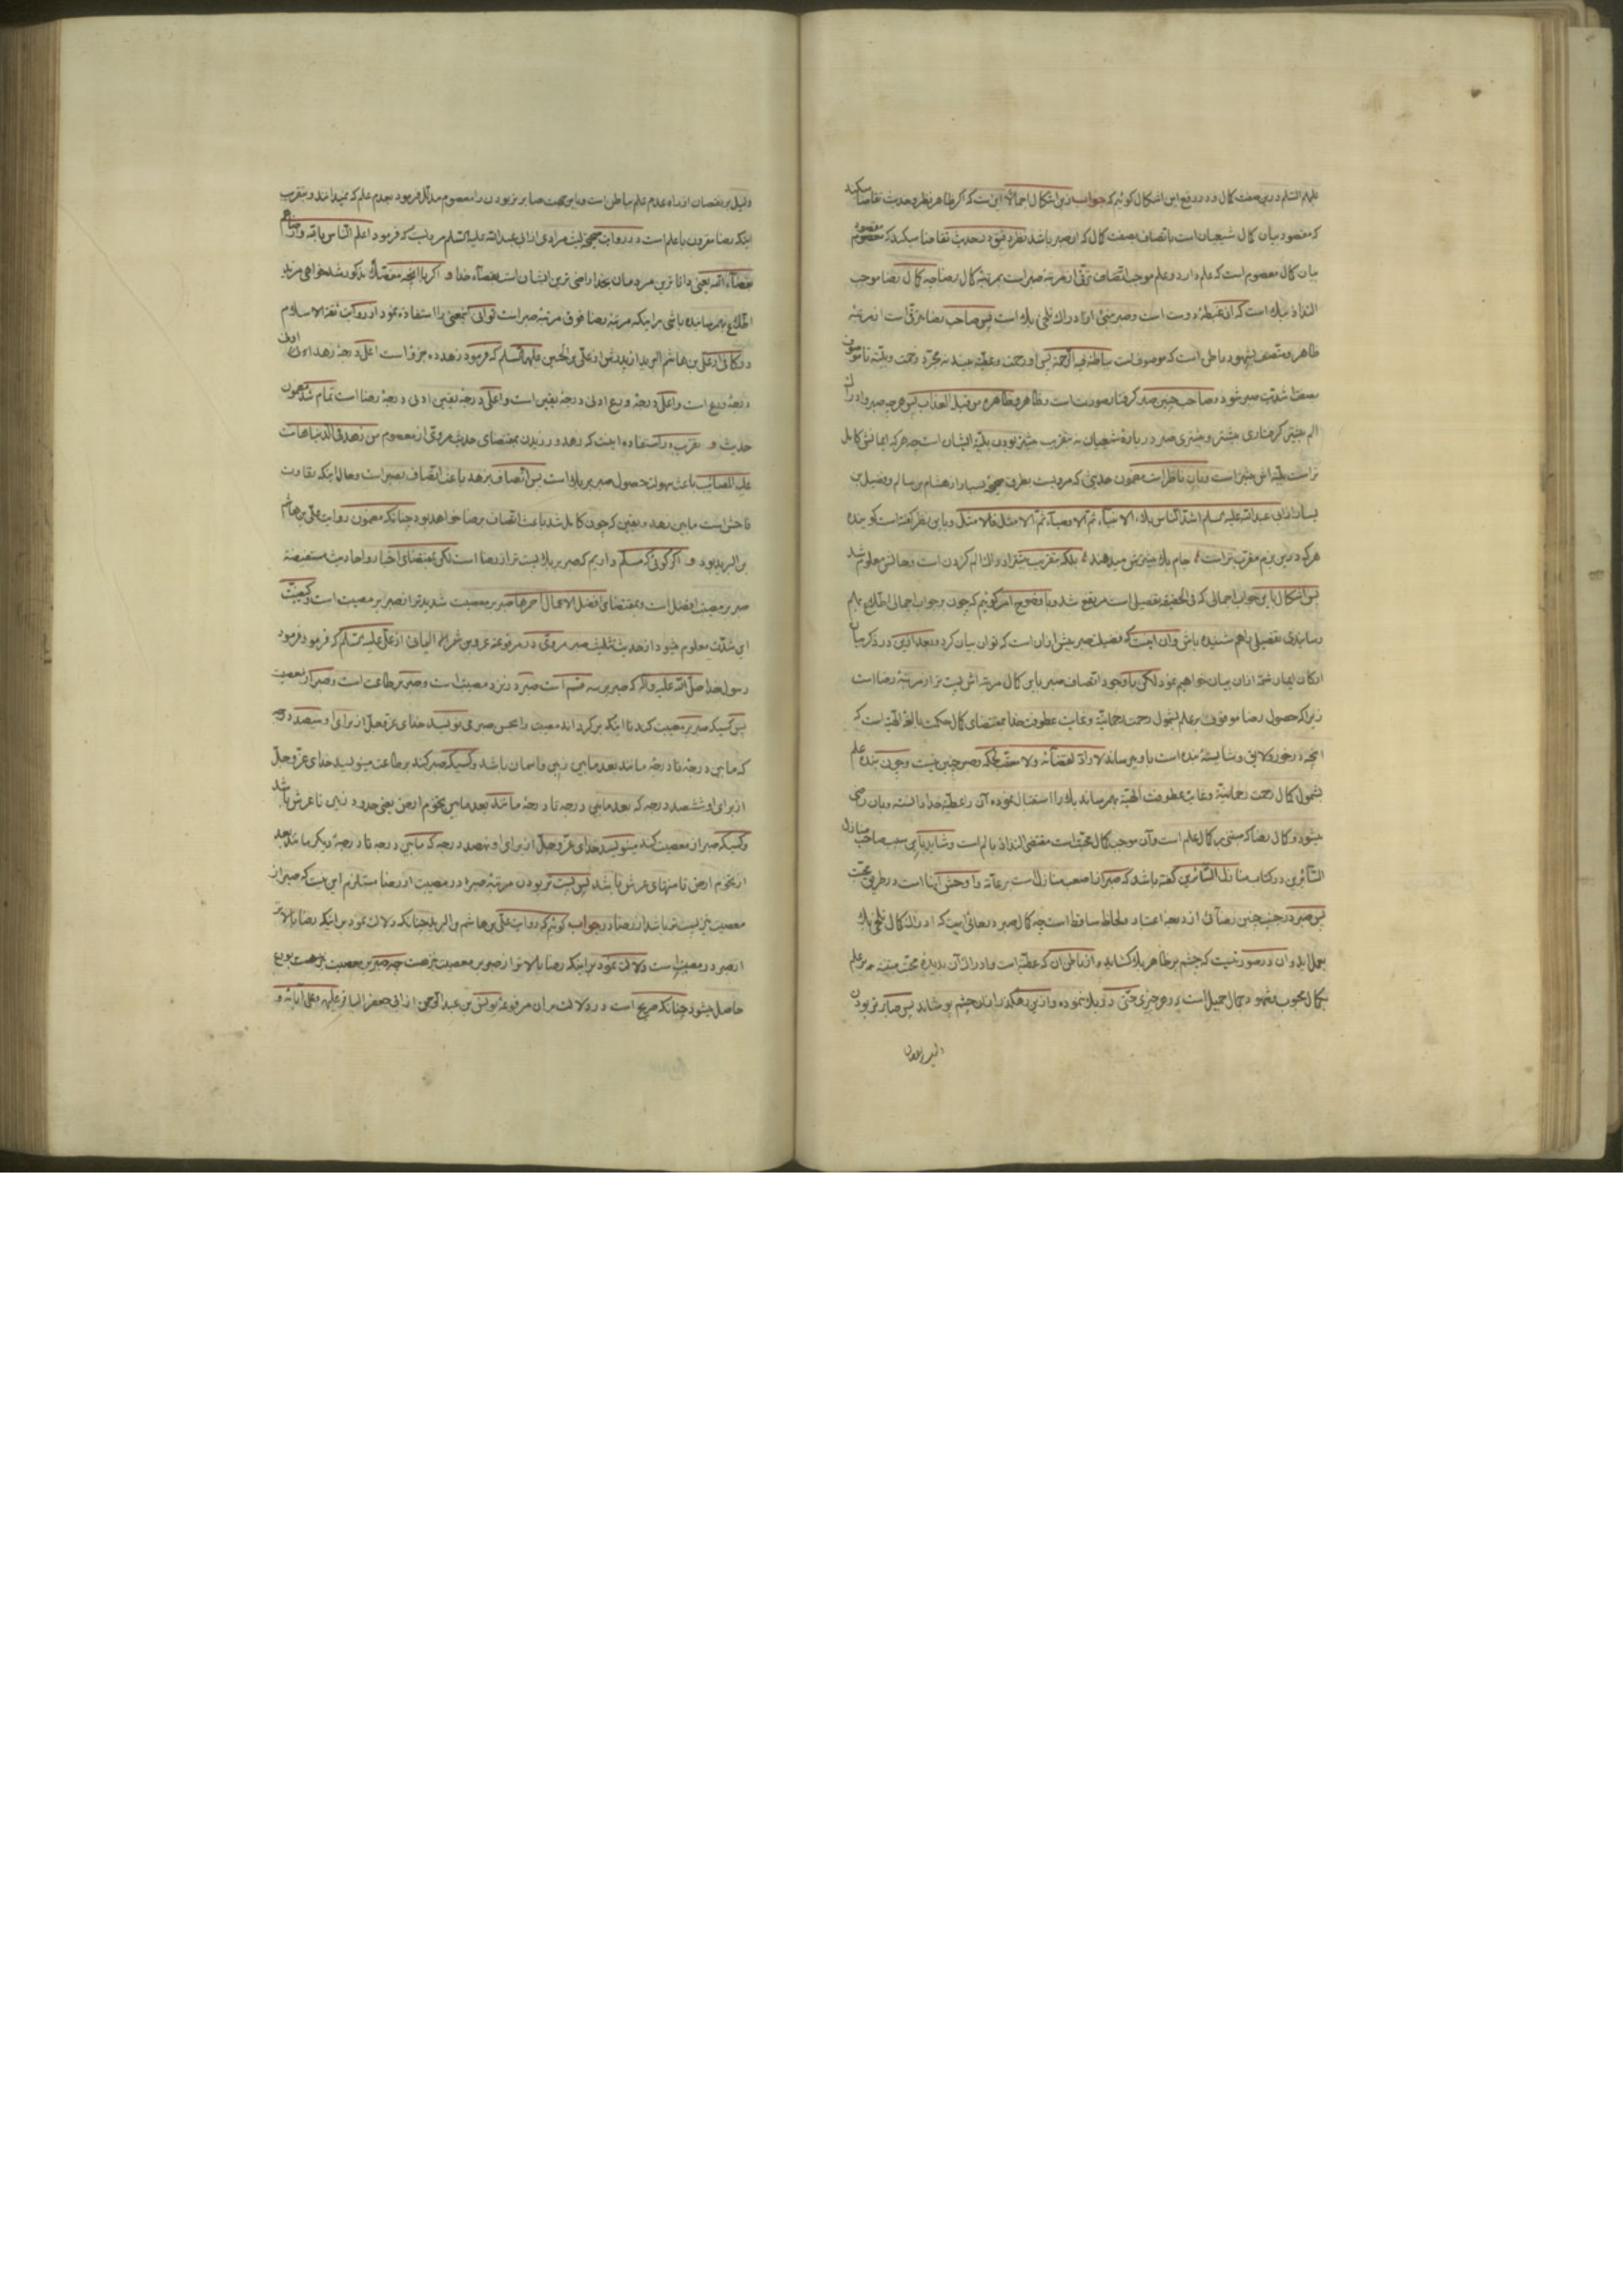 علیهم السلم درین صفت کمال و در رفع این اشکال گوئیم که جواب ازین اشکال اجمالاً این است که اگر ظاهر نظر در حدیث تقاضا میکند
که مقصود بیان کمال شیعیان است باتصاف بصفت کمال که آن صبر باشد نظر دقیق در حدیث تقاضا میکند که مقصود
بیان کمال معصوم است که علم دارد و علم موجب اتصاف ترقی از مرتبه صبر است بمرتبهٔ کمال رضا چه کمال رضا موجب
التذاذ ببلا است که آن عطیهٔ دوست است و صبر مبنی از ادراک تلخی بلا است پس صاحب رضا مترقی است از مرتبهٔ
ظاهر و متصف بشهود باطنی است که موصوف است بباطنه فیه الرحمة پس او رحمت و عطیه میبیند نه مجرد زحمت و بلیه تا
شدت صبر شود و صاحب چنین صبر گرفتار صورت است و ظاهر و ظاهره من قبله العذاب پس هر چه صبر و ادراک
الم چنین گرفتاری بیشتر و بیشتری صبر در بارهٔ شیعیان بتقریب بیشتر بودن بلیهٔ ایشان است چه هر که ایمانش کامل
تر است بلیه اش بیشتر است و باین ناظر است مضمون حدیثی که مرویست بطرق صحیحه از هشام بن سالم و فضیل بن
یسار از ابی عبد الله علیه السلم اشد الناس بلاء الانبیاء ثم الاوصیاء ثم الامثل فالامثل و باین نظر گفته است گوینده
هر که درین بزم مقرب تر است جام بلا بیشترش میدهند بلکه بتقریب ادراک الم کردن است و حالش معلوم شد
پس اشکال باین جواب اجمالی که فی الحقیقه تفصیلی است مرتفع شد و با وضوح امر گوئیم که چون بجواب اجمالی اطلاع بهم
رسانیدی تفصیلی باهم شنیده باش و آن اینست که فضیلت صبر بیش از آن است که توان بیان کرد و بعد ازین در ذکر بیان
ارکان ایمان شمهٔ از آن بیان خواهیم نمود لکن با وجود اتصاف صبر باین کمال مرتبه اش پست تر از مرتبهٔ رضا است
زیرا که حصول رضا موقوف بر علم بشمول رحمت رحمانیّه و غایت عطوفت خدا بمقتضای کمال حکمت بالغهٔ الهیه است که
آنچه در خور و لایق و شایستهٔ بنده است باو میرساند لا رادّ لقضائه ولا معقب لحکمه و صبر چنین نیست و چون بنده علم
بشمول کمال رحمت رحمانیّه و غایت عطوفت الهیّه بهم رساند بلا را استقبال نموده آن را عطیّهٔ خدا دانسته و بآن راضی
میشود و کمال رضا که مبنی بر کمال علم است و آن موجب کمال محبت است مقتضی التذاذ بالم است و شاید باین سبب صاحب منازل
السائرین در کتاب منازل السائرین گفته باشد که صبر از اصعب منازل است بر عامّه و اوحش آنها است در طریق محبّت
پس صبر در جنب چنین رضائی از درجهٔ اعتبار و لحاظ ساقط است چه کمال صبر در جائی است که ادراک کمال تلخی بلا
بعمل آید و آن در صورتیست که چشم بر ظاهر بلا گشاید و از باطن آن که عطیّه است و ادراک آن بدیدهٔ محبت مبتنی بر علم
بکمال محبوب و شهود جمال جمیل است در هر چیزی حتی در بلا نموده و ازین رهگذر از آن چشم پوشاند پس صابر تر بودن
دلیل بر نقصان
دلیل بر نقصان از راه عدم علم بباطن است و باین جهت صابر تر بودن را معصوم مدلّل فرمود بعدم علم که نمیدانند و بتقریب
اینکه رضا مقرون باعلم است در روایت صحیحهٔ لیث مرادی از ابی عبد الله علیه السلم مرویست که فرمود اعلم الناس بالله ارضاهم
بقضاء الله یعنی داناترین مردمان بخدا راضی ترین ایشان است بقضاء خدا و اگر با آنچه مفصلاً مذکور شد خواهی مزید
اطلاع بهم رسانیده باشی بر اینکه مرتبهٔ رضا فوق مرتبهٔ صبر است توانی اینمعنی را استفاده نمود از روایت ثقة الاسلام
در کافی از علی بن هاشم البرید از پدرش از علی بن الحسین علیهما السلم که فرمود زهد ده جزو است اعلی درجهٔ زهد ادنی
درجهٔ ورع است و اعلی درجهٔ ورع ادنی درجهٔ یقین است و اعلی درجهٔ یقین ادنی درجهٔ رضا است تمام شد مضمون
حدیث و تقریب در استفاده اینست که زهد ورزیدن بمقتضای حدیث مروی از معصوم من زهد فی الدنیا هانت
علیه المصائب باعث سهولت حصول صبر بر بلا است پس اتصاف بزهد باعث اتصاف بصبر است و حال اینکه تفاوت
فاحش است مابین زهد و یقین که چون کامل شد باعث اتصاف برضا خواهد بود چنانکه مضمون روایت علی بن هاشم
بن البرید بود و اگر گوئی که مسلّم داریم که صبر بر بلا پست تر از رضا است لکن بمقتضای اخبار و احادیث مستفیضه
صبر بر معصیت افضل است و بمقتضای افضل الاعمال احمزها صبر بر معصیت شدیدتر از صبر بر مصیبت است و کیفیت
این شدّت معلوم میشود از حدیث تثلیث صبر مروی در مرفوعهٔ عمرو بن شمر الیمانی از علی علیه السلم که فرمود فرمود
رسول خدا صلی الله علیه و آله که صبر بر سه قسم است صبر در نزد مصیبت است و صبر بر طاعت است و صبر از معصیت
پس کسیکه صبر بر مصیبت کند تا اینکه برگرداند مصیبت را بحسن صبر می نویسد خدای عزّ و جلّ از برای او سیصد درجه
که مابین درجه تا درجه مانند بعد مابین زمین و آسمان باشد و کسیکه صبر کند بر طاعت مینویسد خدای عزّ و جلّ
از برای او ششصد درجه که بعد مابین درجه تا درجه مانند بعد مابین تخوم ارض یعنی حدود زمین تا عرش باشد
و کسیکه صبر از معصیت کند مینویسد خدای عزّ و جلّ از برای او نهصد درجه که مابین درجه تا درجهٔ دیگر مانند بعد
از تخوم ارض تا منتهای عرش باشد پس پست تر بودن مرتبهٔ صبر در مصیبت از رضا مستلزم این نیست که صبر از
معصیت نیز پست تر باشد از رضا در جواب گوئیم که روایت علی بن هاشم بن البرید چنانکه دلالت نمود بر اینکه رضا بالاتر
از صبر در مصیبت است دلالت نمود بر اینکه رضا بالاتر از صبر بر معصیت نیز هست چه صبر بر معصیت بورع
حاصل میشود چنانکه صریح است در دلالت بر آن مرفوعهٔ یونس بن عبد الرحمن از ابی جعفر الباقر علیه و علی آبائه و